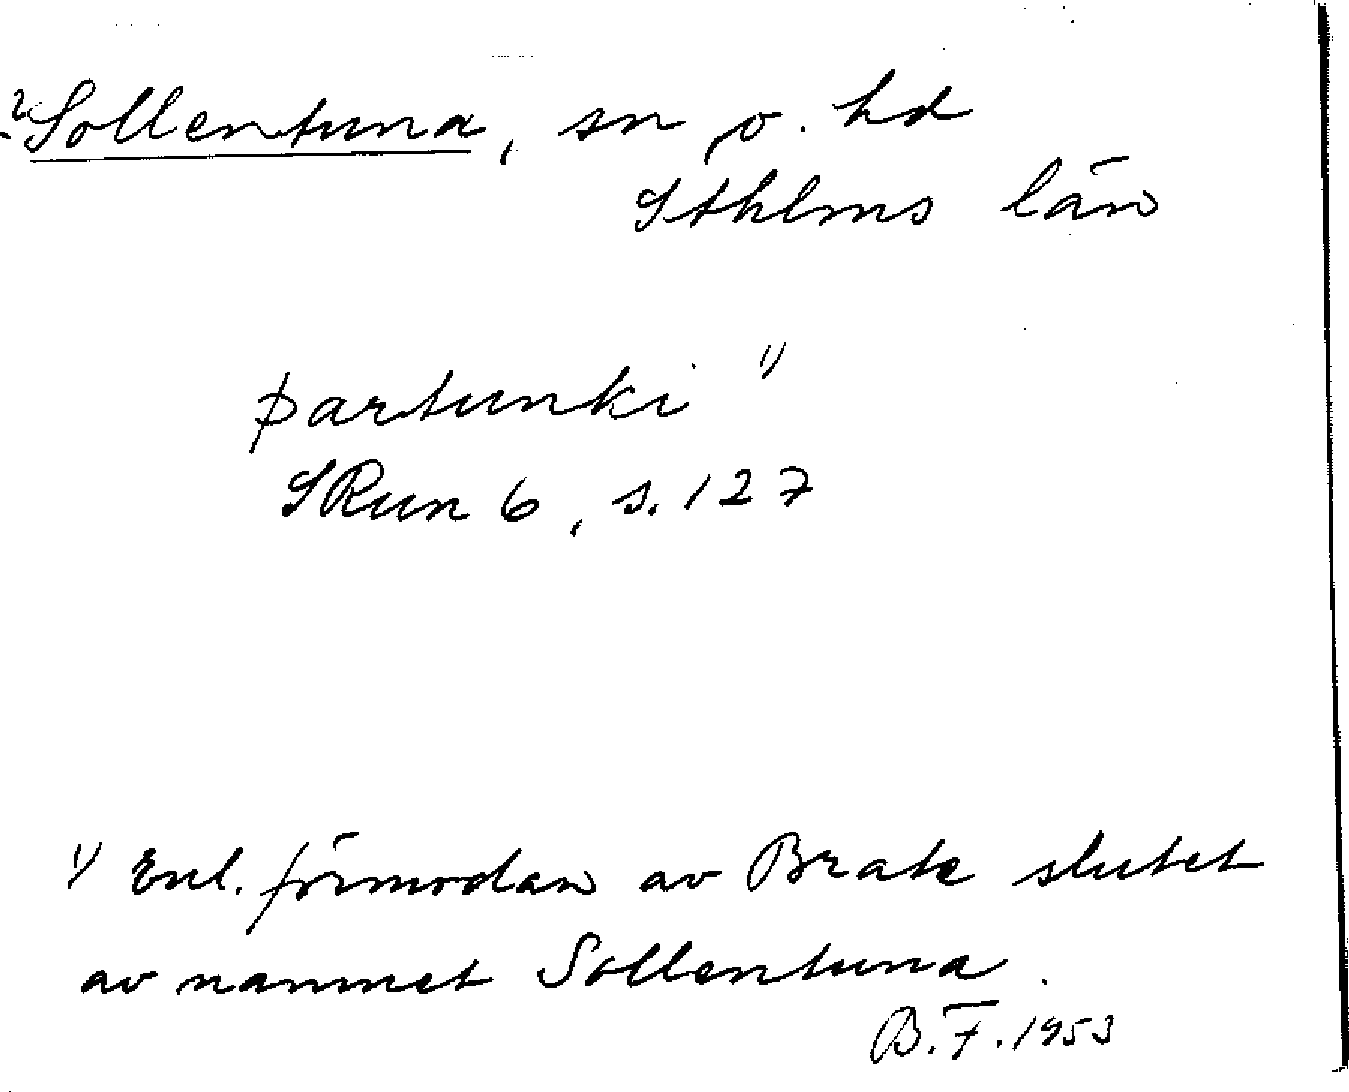 ?Sollentuna, sn o. hd
Sthlms län
þartunki 1)
SRun 6, s. 127
1) Enl. förmodan av Brate slutet
av namnet Sollentuna.
B.F. 1953